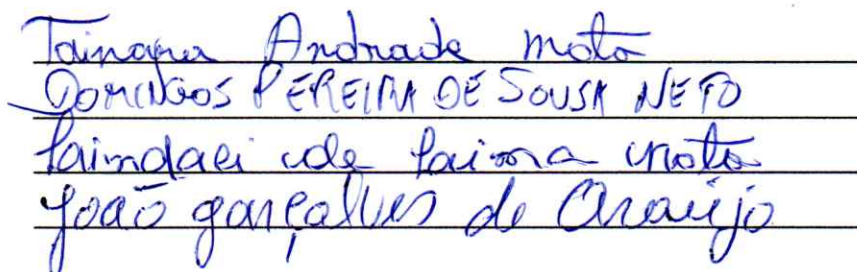 Tainara Andrade mota
DOMINGOS PEREIRA DE SOUSA NETO
de mota
João gonçalves de Araújo